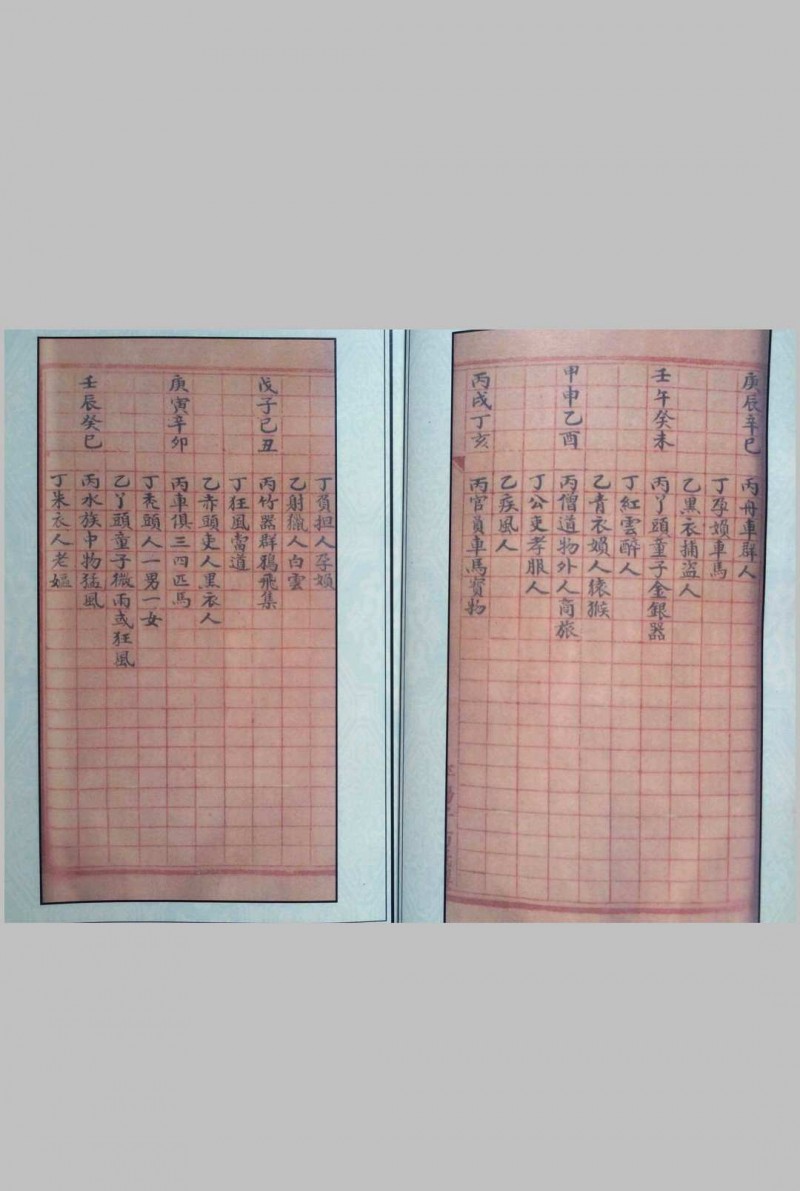 庚辰辛巳
丙舟車群人
丁孕媍車馬
乙黑衣捕盜人
壬午癸未
丙丫頭童子金銀器
丁紅雲醉人
乙青衣媍人猿猴
甲申乙酉
丙僧道物外人商旅
丁公吏孝服人
乙疾風人
丙戌丁亥
丙官員車馬寳物
丁負担人孕媍
乙射獵人白雲
戊子己丑
丙竹器群鴉飛集
丁狂風當道
乙赤頭吏人黑衣人
庚寅辛卯
丙車俱三四匹馬
丁禿頭人一男一女
乙丫頭童子微雨或狂風
壬辰癸巳
丙水族中物猛風
丁朱衣人老嫗